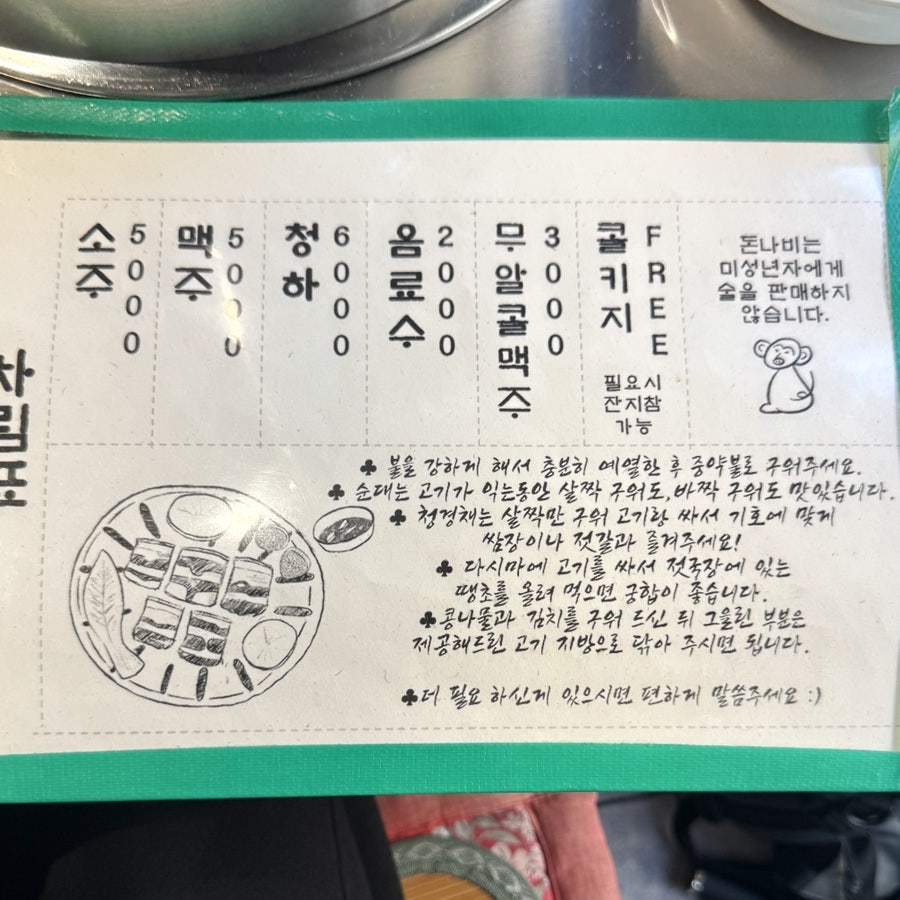 차림표
소주 5000
맥주 5000
청하 6000
음료수 2000
무알콜맥주 3000
콜키지 FREE
필요시
잔지참
가능
돈나비는
미성년자에게
술을 판매하지
않습니다.
♣ 불을 강하게 해서 충분히 예열한 후 중약불로 구워주세요.
♣ 순대는 고기가 익는동안 살짝 구워도, 바짝 구워도 맛있습니다.
♣ 청경채는 살짝만 구워 고기랑 싸서 기호에 맞게
쌈장이나 젓갈과 즐겨주세요!
♣ 다시마에 고기를 싸서 젓국장에 있는
땡초를 올려 먹으면 궁합이 좋습니다.
♣ 콩나물과 김치를 구워 드신 뒤 그을린 부분은
제공해드린 고기 지방으로 닦아 주시면 됩니다.
♣ 더 필요 하신게 있으시면 편하게 말씀주세요 :)